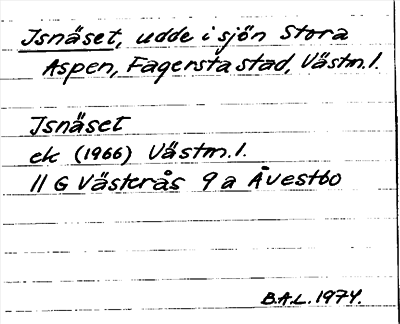 Isnäset, udde i sjön Stora
Aspen, Fagersta stad, Västm.l.
Isnäset
ek (1966) Västm.l.
11 G Västerås 9 a Åvestbo
B.A.L. 1974.